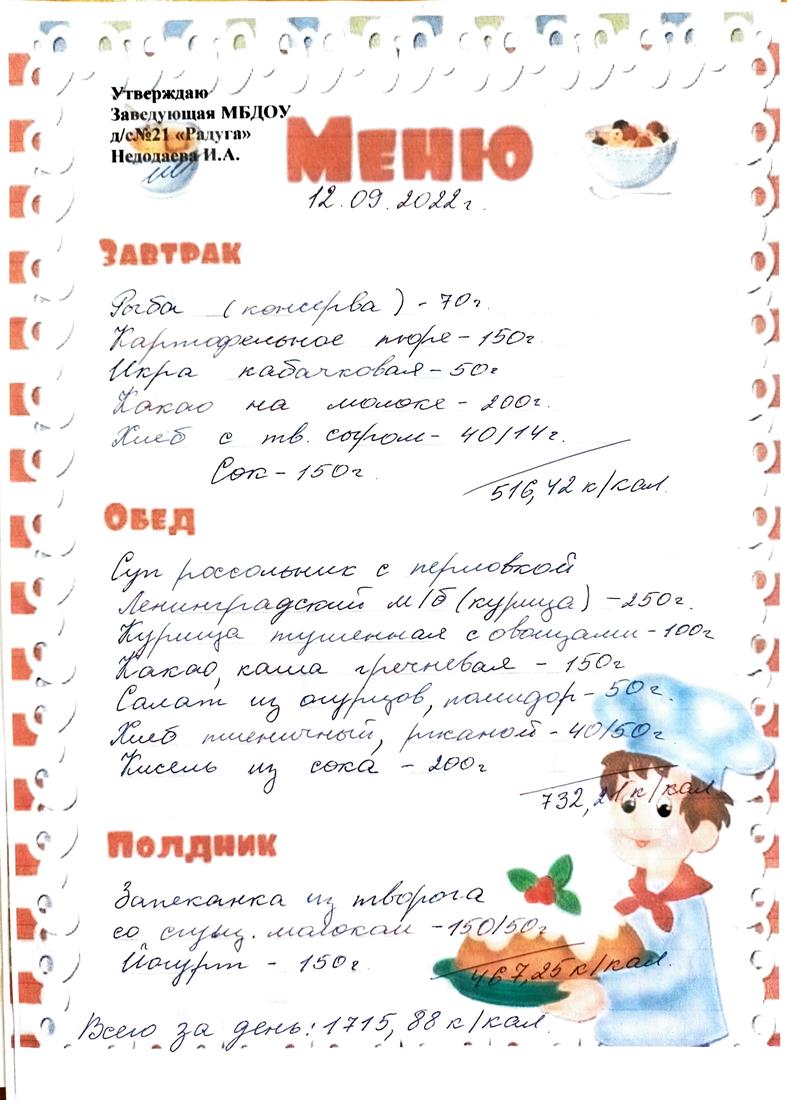 Утверждаю
Заведующая МБДОУ
д/с№21 «Радуга»
Недодаева И.А.
Меню
12.09.2022г.
Завтрак
Рыба (консерва) - 70г.
Картофельное пюре - 150г.
Икра кабачковая - 50г
Какао на молоке - 200г.
Хлеб с тв. сыром - 40/14г.
Сок - 150г.
516,42 к/кал.
Обед
Суп россольник с перловкой
Ленинградский м/б (курица) - 250г.
Курица тушенная с овощами - 100г
Какао, каша гречневая - 150г
Салат из огурцов, помидор - 50г.
Хлеб пшеничный, ржаной - 40/50г.
Кисель из сока - 200г
732,21 к/кал
Полдник
Запеканка из творога
со сгущ. молоком - 150/50г
Йогурт - 150г.
467,25 к/кал.
Всего за день: 1715,88 к/кал.